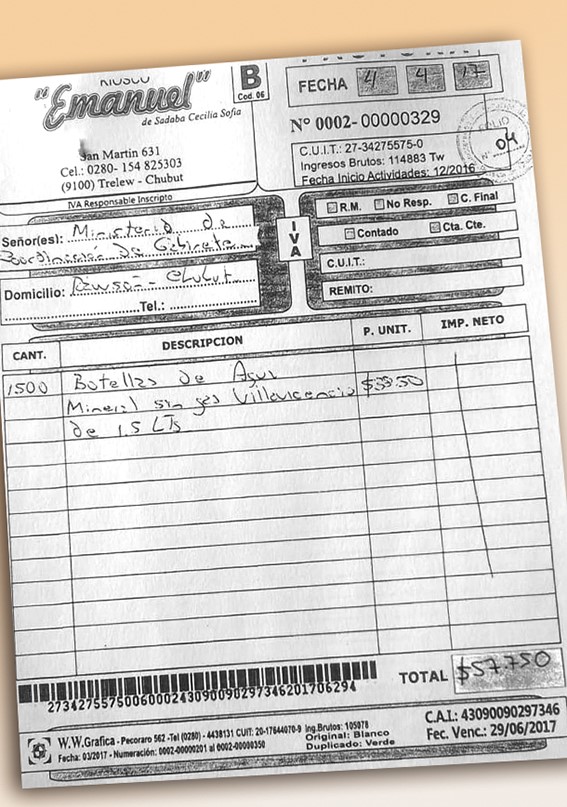 KIOSCO
"Emanuel"
de Sadaba Cecilia Sofia
San Martin 631
Cel.: 0280- 154 825303
(9100) Trelew - Chubut
IVA Responsable Inscripto
B
Cod. 06
FECHA 4 4 17
N° 0002- 00000329
C.U.I.T.: 27-34275575-0
Ingresos Brutos: 114883 Tw
Fecha Inicio Actividades: 12/2016
FOLIO
N° 04
Señor(es): Ministerio de
Coordinación de Gabinete
Domicilio: Rawson - Chubut
Tel.:
IVA
R.M. No Resp. C. Final
Contado Cta. Cte.
C.U.I.T.:
REMITO:
CANT. DESCRIPCION P. UNIT. IMP. NETO
1500 Botellas de Agua
Mineral sin gas Villavicencio
de 1.5 LTs
TOTAL $57.750
2734275575006000243090090297346201706294
W.W.Grafica - Pecoraro 562 -Tel (0280) - 4438131 CUIT: 20-17644070-9 Ing.Brutos: 105078
Fecha: 03/2017 - Numeración: 0002-00000201 al 0002-00000350
Original: Blanco
Duplicado: Verde
C.A.I.: 43090090297346
Fec. Venc.: 29/06/2017